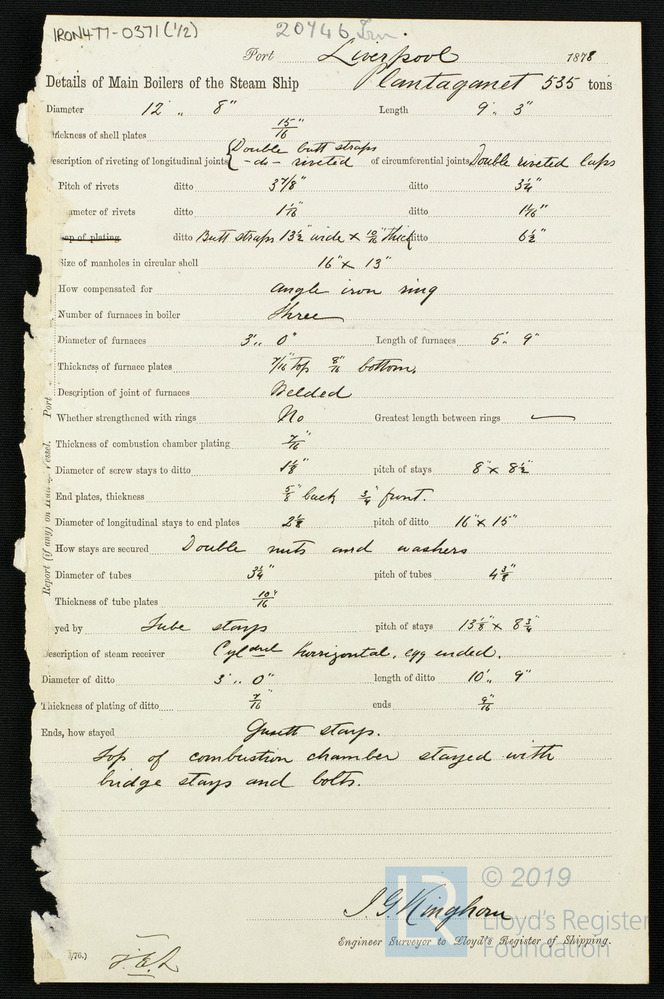 IRON477-0371 (1/2) 20746 Irn.
Port Liverpool 1878
Details of Main Boilers of the Steam Ship Plantaganet 535 tons
Diameter 12' " 8" Length 9' " 3"
hickness of shell plates 15/16"
escription of riveting of longitudinal joints { Double butt straps - do - riveted of circumferential joints Double riveted laps
Pitch of rivets ditto 3 7/8" ditto 3 1/4"
ameter of rivets ditto 1 1/16" ditto 1 1/16"
ap of plating ditto Butt straps 13 1/2" wide x 10/16" thick ditto 6 1/2"
Size of manholes in circular shell 16" x 13"
How compensated for angle iron ring
Number of furnaces in boiler Three
Diameter of furnaces 3' " 0" Length of furnaces 5' " 9"
Thickness of furnace plates 7/16" top 8/16" bottom.
Description of joint of furnaces Welded
Whether strengthened with rings No Greatest length between rings —
Thickness of combustion chamber plating 7/16"
Diameter of screw stays to ditto 1 1/8" pitch of stays 8" x 8 1/2"
End plates, thickness 5/8" back 3/4" front.
Diameter of longitudinal stays to end plates 2 1/8" pitch of ditto 16" x 15"
How stays are secured Double nuts and washers
Diameter of tubes 3 1/4" pitch of tubes 4 3/8"
Thickness of tube plates 10/16"
yed by Tube stays pitch of stays 13 1/8" x 8 3/4"
escription of steam receiver Cyldrcl horrizontal, egg ended.
Diameter of ditto 3' " 0" length of ditto 10' " 9"
Thickness of plating of ditto 7/16" ends 9/16"
Ends, how stayed Gusett stays.
Top of combustion chamber stayed with
bridge stays and bolts.
J G Kinghorn
Engineer Surveyor to Lloyd's Register of Shipping.
/76.)
Report (if any) on Vessel. Port
© 2019
LR Lloyd's Register
Foundation